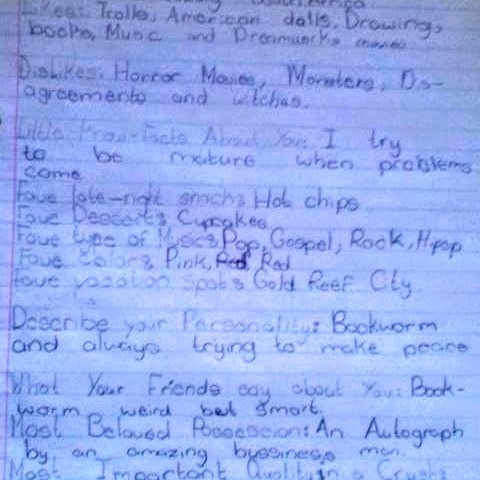 South Africa
Likes: Trolls, American dolls, Drawing,
books, Music and Dreamworks movies
Dislikes: Horror Movies, Monsters, Dis-
agreements and witches.
Little Know-Facts About You: I try
to be mature when problems
come
Fave late-night snacks Hot chips
Fave Desserts Cupcakes
Fave type of Music: Pop, Gospel, Rock, Hipop
Fave Colors Pink, Red
Fave vacation spots Gold Reef City
Describe your Personality: Bookworm
and always trying to make peace
What Your Friends say about You: Book-
worm weird but smart.
Most Beloved Possession: An Autograph
by an amazing bussiness man.
Most Important Quality in a Crush: